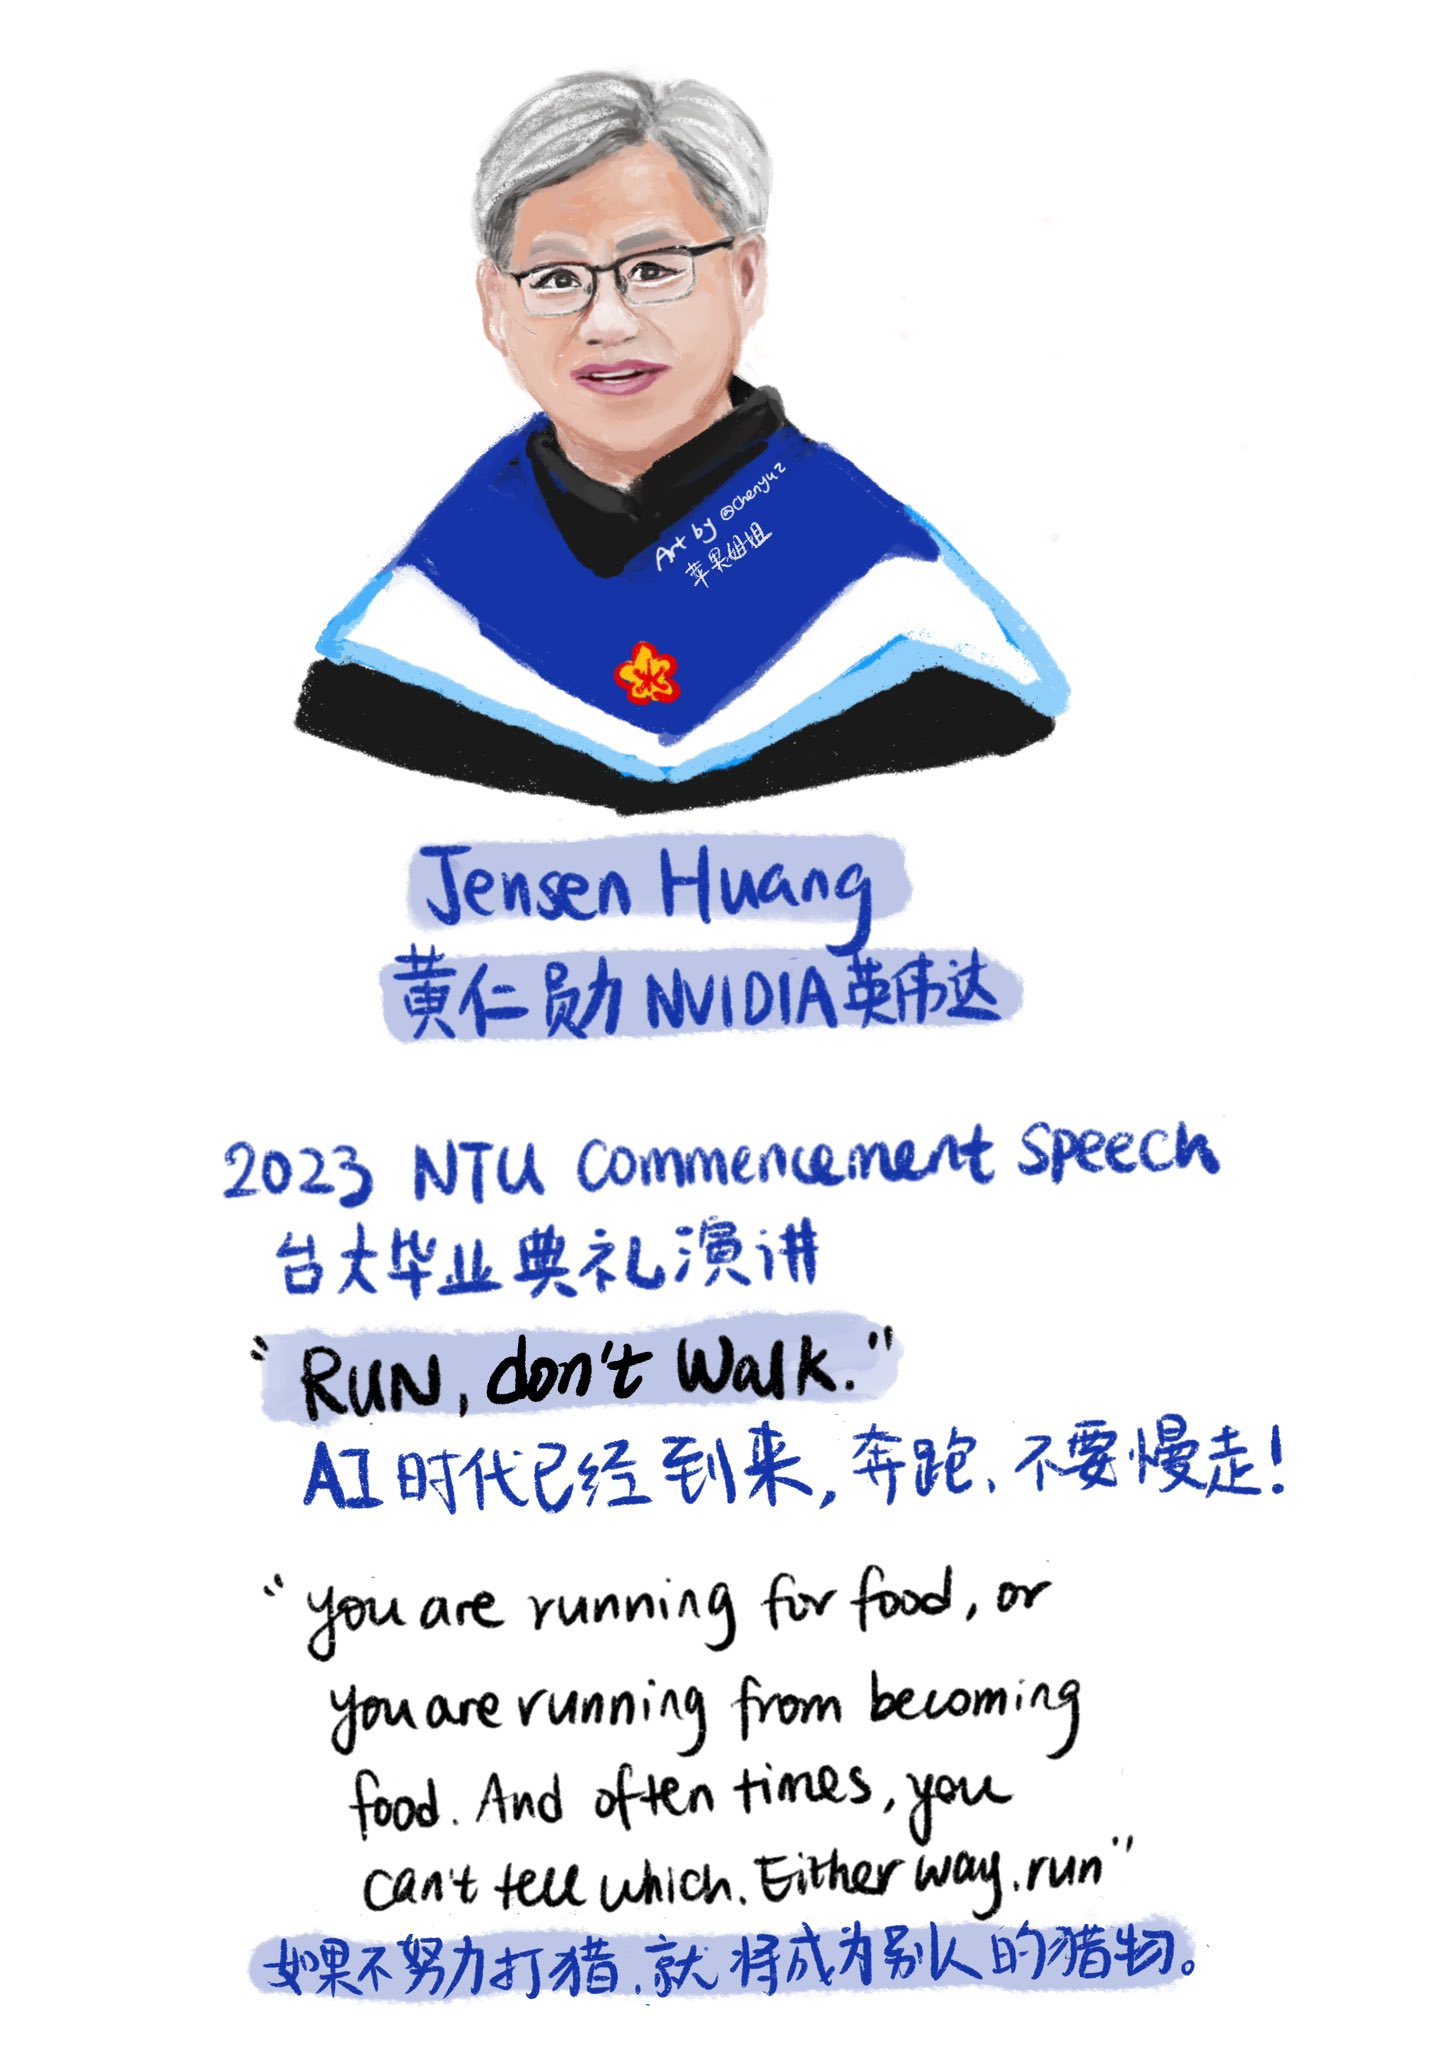 Art by @chenyuz
苹果姐姐
Jensen Huang
黄仁勋 NVIDIA英伟达
2023 NTU Commencement Speech
台大毕业典礼演讲
"RUN, don't walk."
AI时代已经到来,奔跑、不要慢走!
"you are running for food, or
you are running from becoming
food. And often times, you
can't tell which. Either way, run"
如果不努力打猎,就将成为别人的猎物。